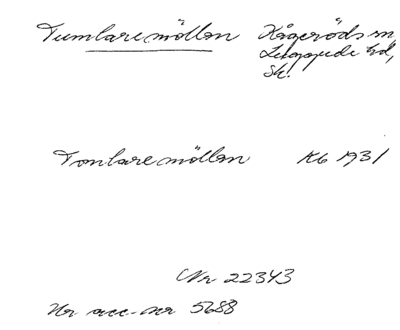 Tumlaremöllan Kågeröds sn,
Luggude hd,
Sk.
Tomlaremöllan Kb 1931
Nr 22343
Ur acc-nr 5688